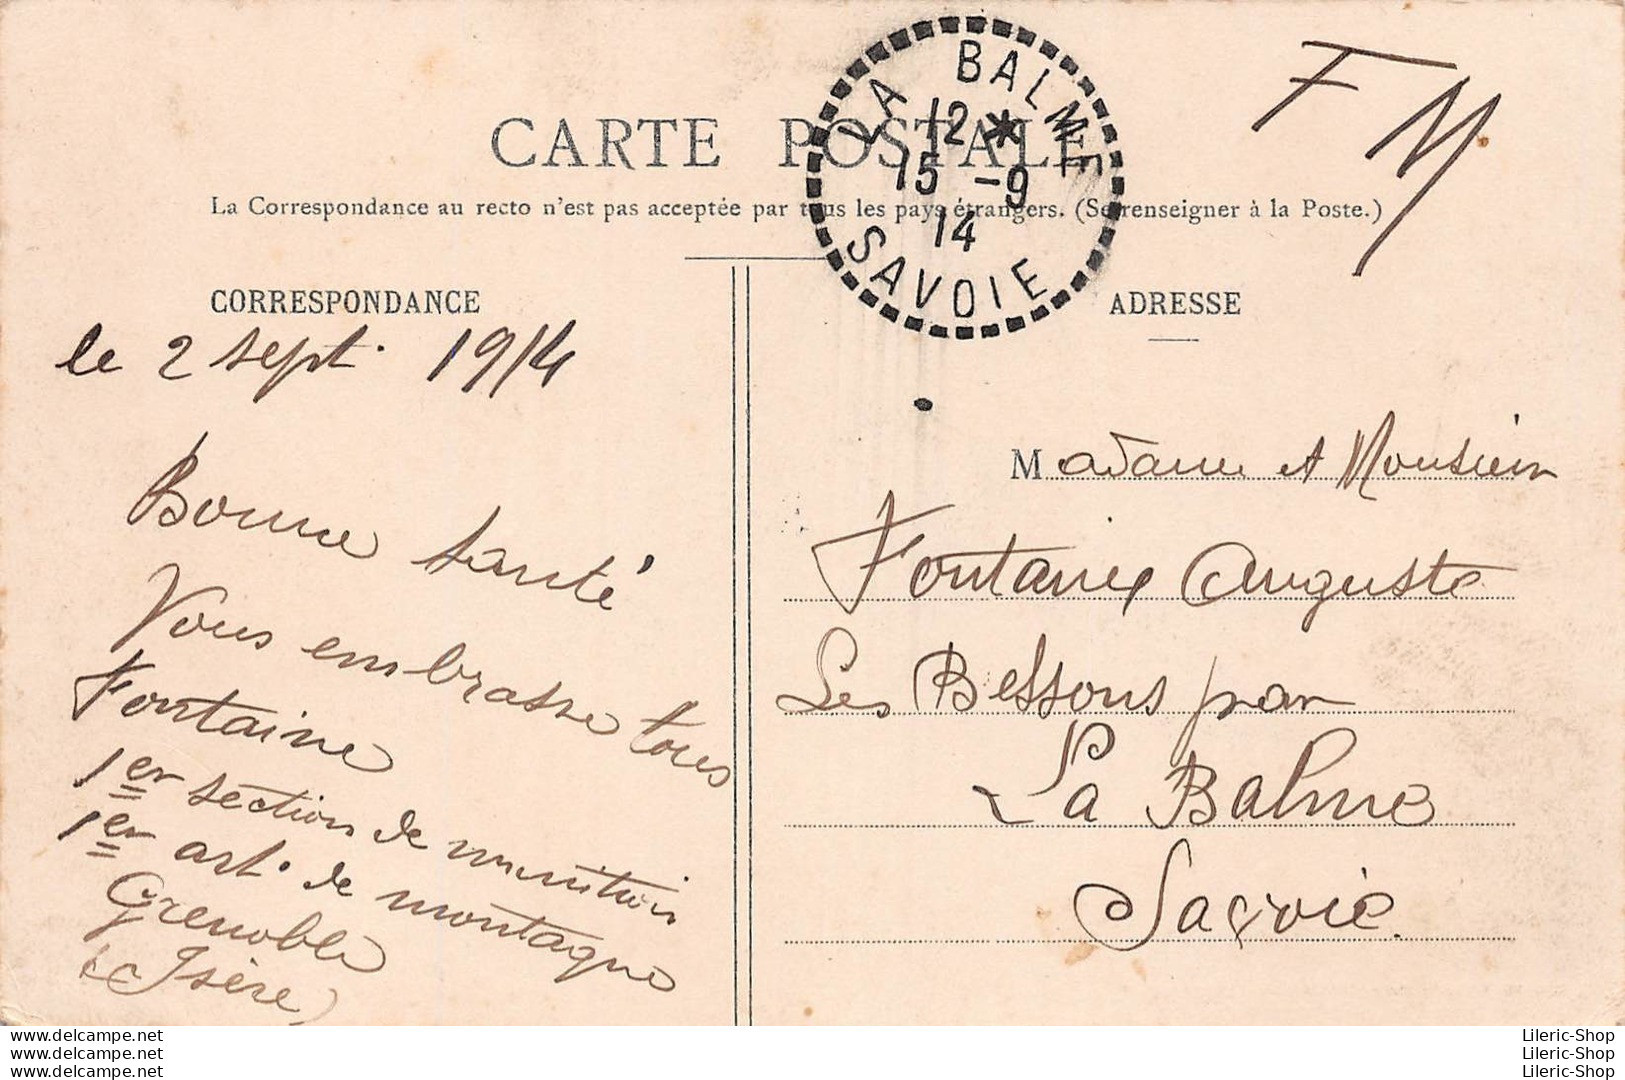 F M
LA BALME
12 *
15 -9
14
SAVOIE
CARTE POSTALE
La Correspondance au recto n'est pas acceptée par tous les pays étrangers. (Se renseigner à la Poste.)
CORRESPONDANCE
le 2 sept. 1914
Bonne santé
Vous embrasse tous
Fontaine
1er section de munition
1er art. de montagne
Grenoble
(Isère)
ADRESSE
Madame et Monsieur
Fontaine Auguste
Les Bessons par
La Balme
Savoie.
Lileric-shop.delcampe.net
Lileric-shop.delcampe.net
Lileric-shop.delcampe.net
Lileric-Shop
Lileric-Shop
Lileric-Shop